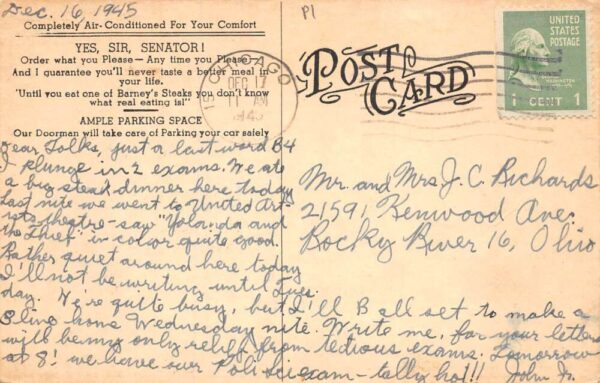 Dec. 16, 1945
Completely Air-Conditioned For Your Comfort
YES, SIR, SENATOR!
Order what you Please — Any time you Please
And I guarantee you'll never taste a better meal in
your life.
"Until you eat one of Barney's Steaks you don't know
what real eating is!"
AMPLE PARKING SPACE
Our Doorman will take care of Parking your car safely
P1
POST
CARD
CHICAGO
DEC 17
11 AM
1945
UNITED
STATES
POSTAGE
WASHINGTON
1 CENT 1
Dear Folks, just a last word B4
I plunge in 2 exams. We ate
a big steak dinner here today
Last nite we went to United Art-
ists theatre - saw "Yolanda and
the Thief" in color quite good.
Rather quiet around here today
I'll not be writing until Tues
day. We're quite busy, but I'll B all set to make a
Bline home Wednesday nite. Write me, for your letters
will be my only relief from tedious exams. Tomorrow
at 8! we have our Poli Sci exam - tally ho!!
John Jr.
Mr. and Mrs J. C. Richards
21591 Kenwood Ave.
Rocky River 16, Ohio